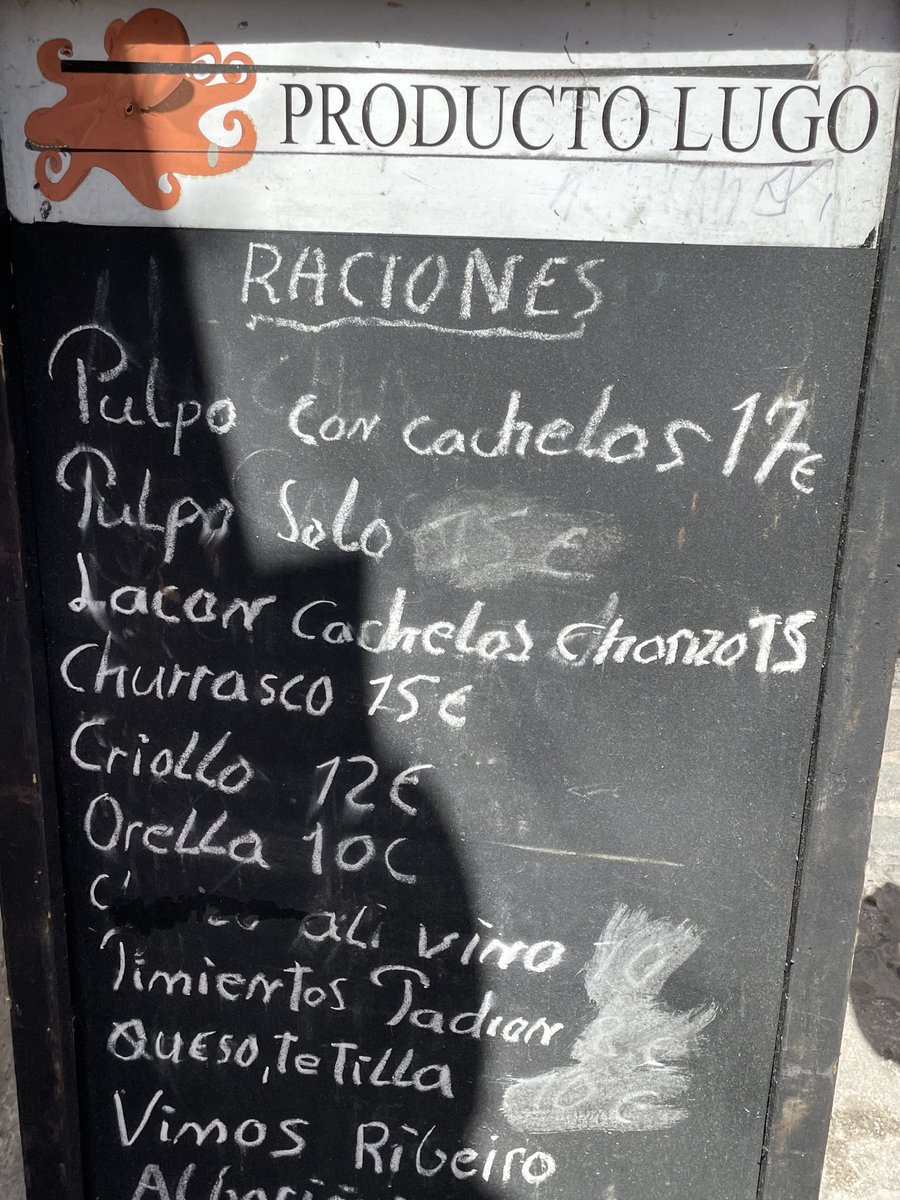 PRODUCTO LUGO
RACIONES
Pulpo con cachelos 17€
Pulpo Solo 15 €
Lacon Cachelos Chorizo 15
Churrasco 15€
Criollo 12€
Orella 10€
ali vino
Pimientos Padron
QUESO, TeTilla
Vinos Ribeiro